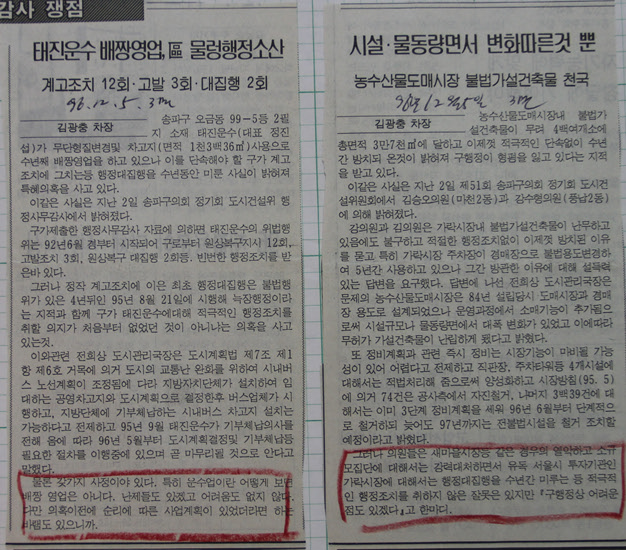 감사 쟁점
태진운수 배짱영업, 區 물렁행정소산
계고조치 12회·고발 3회·대집행 2회
96. 12. 5. 3면
김광충 차장
송파구 오금동 99-5등 2필
지 소재 태진운수(대표 정진
섭)가 무단형질변경및 차고지(면적 1천3백36㎡)사용으로
수년째 배짱영업을 하고 있으나 이를 단속해야 할 구가 계고
조치에 그치는등 행정대집행을 수년동안 미룬 사실이 밝혀져
특혜의혹을 사고 있다.
이같은 사실은 지난 2일 송파구의회 정기회 도시건설위 행
정사무감사에서 밝혀졌다.
구가제출한 행정사무감사 자료에 의하면 태진운수의 위법행
위는 92년6월 경부터 시작되어 구로부터 원상복구지시 12회,
고발조치 3회, 원상복구 대집행 2회등. 빈번한 행정조치를 받
은바 있다.
그러나 정작 계고조치에 이은 최초 행정대집행은 불법행
위가 있은 4년뒤인 95년 8월 21일에 시행해 늑장행정이라
는 지적과 함께 구가 태진운수에대해 적극적인 행정조치를
취할 의지가 처음부터 없었던 것이 아니냐는 의혹을 사고
있는것.
이와관련 전희상 도시관리국장은 도시계획법 제7조 제1
항 제6호 거목에 의거 도시의 교통난 완화를 위하여 시내버
스 노선계획이 조정됨에 다라 지방자치단체가 설치하여 임
대하는 공영차고지와 도시계획으로 결정한후 버스업체가 시
행하고, 지방단체에 기부체납하는 시내버스 차고지 설치는
가능하다고 전제하고 95년 9월 태진운수가 기부체납의사를
전해 옴에 따라 96년 5월부터 도시계획결정및 기부체납등
필요한 절차를 이행중에 있으며 곧 마무리될 것으로 안다고
말했다.
물론 갖가지 사정이야 있다. 특히 운수업이란 어떻게 보면
배짱 영업은 아니다. 난제들도 있겠고 어려움도 없지 않다.
다만 의혹이전에 순리에 따른 사업계획이 있었더라면 하는
바램도 있으니까.
시설·물동량면서 변화따른것 뿐
농수산물도매시장 불법가설건축물 천국
96년 12월 5일 3면
김광충 차장
농수산물도매시장내 불법가
설건축물이 무려 4백여개소에
총면적 3만7천㎡에 달하고 이제껏 적극적인 단속없이 수년
간 방치되 온것이 밝혀져 구행정이 형평을 잃고 있다는 지적
을 받고 있다.
이같은 사실은 지난 2일 제51회 송파구의회 정기회 도시건
설위원회에서 김승오의원(마천2동)과 감수형의원(풍납2동)
에 의해 밝혀졌다.
강의원과 김의원은 가락시장내 불법가설건축물이 난무하고
있음에도 불구하고 적절한 행정조치없이 이제껏 방치된 이유
를 묻고 특히 가락시장 주차장이 경매장으로 불법용도변경하
여 5년간 사용하고 있으나 그간 방관한 이유에 대해 설득력
있는 답변을 요구했다. 답변에 나선 전희상 도시관리국장은
문제의 농수산물도매시장은 84년 설립당시 도매시장과 경매
장 용도로 설계되었으나 운영과정에서 소매기능이 추가됨으
로써 시설규모나 물동량면에서 대폭 변화가 있었고 이에따라
무허가 가설건축물이 난립하게 됐다고 밝혔다.
또 정비계획과 관련 즉시 정비는 시장기능이 마비될 가능
성이 있어 어렵다고 전제하고 직판장, 주차타워등 4개시설에
대해서는 적법처리해 줌으로써 양성화하고 시장방침(95. 5)
에 의거 74건은 공사측에서 자진철거, 나머지 3백39건에 대
해서는 이미 3단계 정비계획을 세워 96년 6월부터 단계적으
로 철거하되 늦어도 97년까지는 전불법시설을 철거 조치할
예정이라고 밝혔다.
그러나 의원들은 새마을시장등 같은 경우의 열악하고 소규
모집단에 대해서는 강력대처하면서 유독 서울시 투자기관인
가락시장에 대해서는 행정대집행을 수년간 미루는 등 적극적
인 행정조치를 취하지 않은 잘못은 있지만 『구행정상 어려운
점도 있겠다』고 한마디.